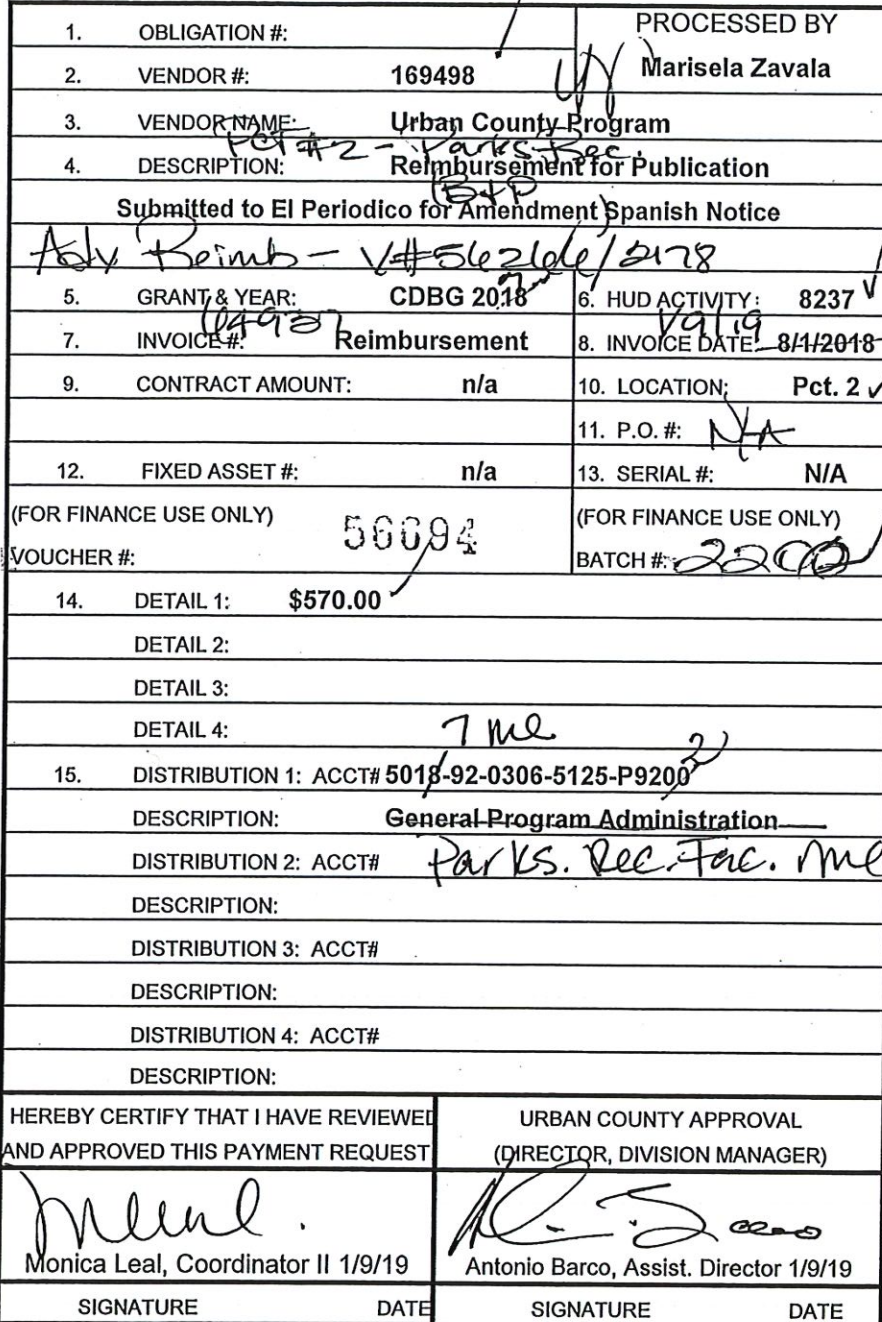 PROCESSED BY
1. OBLIGATION #:
2. VENDOR #: 169498
Marisela Zavala
3. VENDOR NAME: Urban County Program
PCT #2 - Parks Rec.
4. DESCRIPTION: Reimbursement for Publication
B+P
Submitted to El Periodico for Amendment Spanish Notice
Adv Reimb - V#
5. GRANT & YEAR: CDBG 2018
6. HUD ACTIVITY: 8237
7. INVOICE#: Reimbursement
8. INVOICE DATE: 8/1/2018
9. CONTRACT AMOUNT: n/a
10. LOCATION: Pct. 2
11. P.O. #: N/A
12. FIXED ASSET #: n/a
13. SERIAL #: N/A
(FOR FINANCE USE ONLY)
VOUCHER #: 56694
(FOR FINANCE USE ONLY)
BATCH #:
14. DETAIL 1: $570.00
DETAIL 2:
DETAIL 3:
DETAIL 4:
7 ml 2
15. DISTRIBUTION 1: ACCT# 5018-92-0306-5125-P9200
DESCRIPTION: General Program Administration
DISTRIBUTION 2: ACCT# Parks. Rec. Fac. ml
DESCRIPTION:
DISTRIBUTION 3: ACCT#
DESCRIPTION:
DISTRIBUTION 4: ACCT#
DESCRIPTION:
HEREBY CERTIFY THAT I HAVE REVIEWED
AND APPROVED THIS PAYMENT REQUEST
URBAN COUNTY APPROVAL
(DIRECTOR, DIVISION MANAGER)
Monica Leal, Coordinator II 1/9/19
Antonio Barco, Assist. Director 1/9/19
SIGNATURE DATE
SIGNATURE DATE